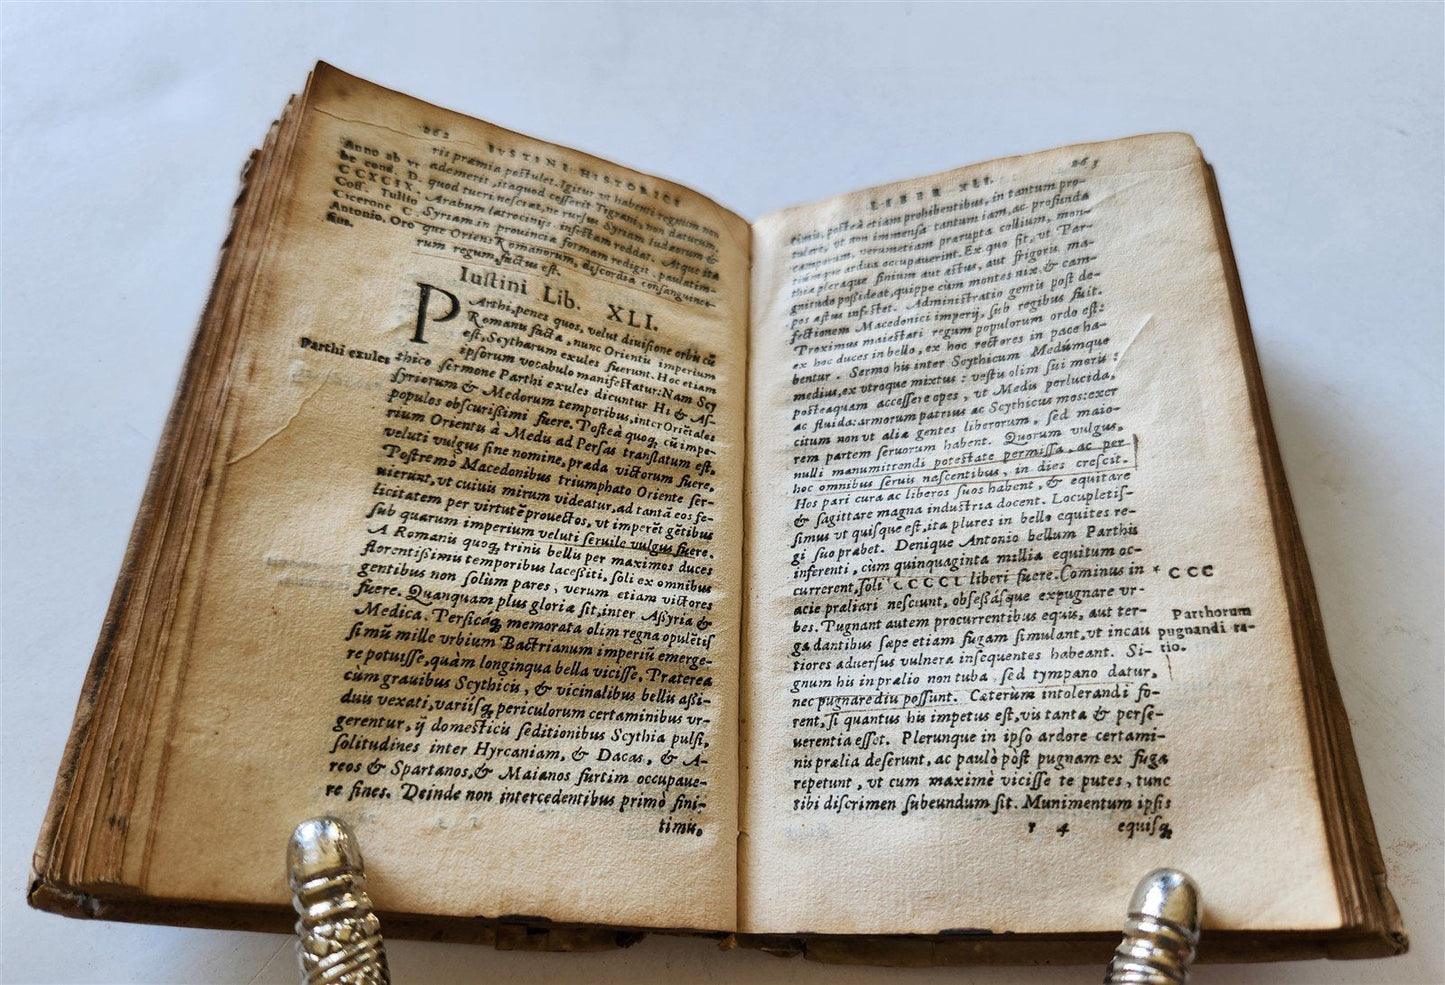 262 IVSTINI HISTORICI
Anno ab vr
be cond. D.
CCXCIX.
Coss. Tullio
Cicerone C.
Antonio. Oro
sius.
ris præmia postulet. Igitur vt habenti regnum non
ademerit, itaquod cesserit Tigrani, non daturum,
quod tueri nesciat, ne rursus Syriam Iudæorum &
Arabum latrocinijs infestam reddat. Atque ita
Syriam in prouinciæ formam redigit. paulatim-
que Oriens Romanorum, discordia consanguineo-
rum regum, factus est.
Iustini Lib. XLI.
PArthi, penes quos, velut diuisione orbis cū
Romanis facta, nunc Orientis imperium
est, Scytharum exules fuerunt. Hoc etiam
ipsorum vocabulo manifestatur: Nam Scy
Parthi exules
thico sermone Parthi exules dicuntur Hi & As-
syriorum & Medorum temporibus, inter Oriētales
populos obscurißimi fuere. Posteà quoq; cū impe-
rium Orientis à Medis ad Persas translatum est,
veluti vulgus sine nomine, præda victorum fuere.
Postremò Macedonibus triumphato Oriente ser-
uierunt, vt cuiuis mirum videatur, ad tantā eos fe-
licitatem per virtutē prouectos, vt imperēt gētibus
sub quarum imperium veluti seruile vulgus fuere.
A Romanis quoq; trinis bellis per maximos duces
florentißimis temporibus laceßiti, soli ex omnibus
gentibus non solùm pares, verum etiam victores
fuere. Quanquam plus gloriæ sit, inter Aßyria &
Medica. Persicáq; memorata olim regna opulētiß
simū mille vrbium Bactrianum imperiū emerge-
re potuisse, quàm longinqua bella vicisse, Præterea
cùm grauibus Scythicis, & vicinalibus bellis aßi-
duis vexati, variisq; periculorum certaminibus vr-
gerentur, ij domesticis seditionibus Scythia pulsi,
solitudines inter Hyrcaniam, & Dacas, & A-
reos & Spartanos, & Maianos furtim occupaue-
re fines. Deinde non intercedentibus primò fini-
timis.
LIBER XLI. 263
timis, posteà etiam prohibentibus, in tantum pro-
tulere, vt non immensa tantum iam, ac profunda
camporum, verumetiam prærupta collium, mon-
tiúmque ardua occupauerint. Ex quo fit, vt Par-
thiæ pleraque finium aut æstus, aut frigoris ma-
gnitudo poßideat, quippe cùm montes nix, & cam-
pos æstus infestet. Administratio gentis post de-
fectionem Macedonici imperij, sub regibus fuit.
Proximus maiestati regum populorum ordo est:
ex hoc duces in bello, ex hoc rectores in pace ha-
bentur. Sermo his inter Scythicum Medúmque
medius, ex vtroque mixtus: vestis olim sui moris:
posteaquam accessere opes, vt Medis perlucida,
ac fluida: armorum patrius ac Scythicus mos: exer
citum non vt aliæ gentes liberorum, sed maio-
rem partem seruorum habent. Quorum vulgus,
nulli manumittendi potestate permissa, ac per
hoc omnibus seruis nascentibus, in dies crescit.
Hos pari cura ac liberos suos habent, & equitare
& sagittare magna industria docent. Locupletis-
simus vt quisque est, ita plures in bello equites re-
gi suo præbet. Denique Antonio bellum Parthis
inferenti, cùm quinquaginta millia equitum oc-
currerent, soli * CCCCL liberi fuere. Cominus in
* CCC
acie præliari nesciunt, obsessásque expugnare vr-
bes. Pugnant autem procurrentibus equis, aut ter-
ga dantibus sæpe etiam fugam simulant, vt incau
tiores aduersus vulnera insequentes habeant. Si-
Parthorum
pugnandi ra-
tio.
gnum his in prælio non tuba, sed tympano datur,
nec pugnare diu possunt. Cæterùm intolerandi fo-
rent, si quantus his impetus est, vis tanta & perse-
uerentia esset. Plerunque in ipso ardore certami-
nis prælia deserunt, ac paulò pòst pugnam ex fuga
repetunt, vt cum maximè vicisse te putes, tunc
tibi discrimen subeundum sit. Munimentum ipsis
r 4 equisq;